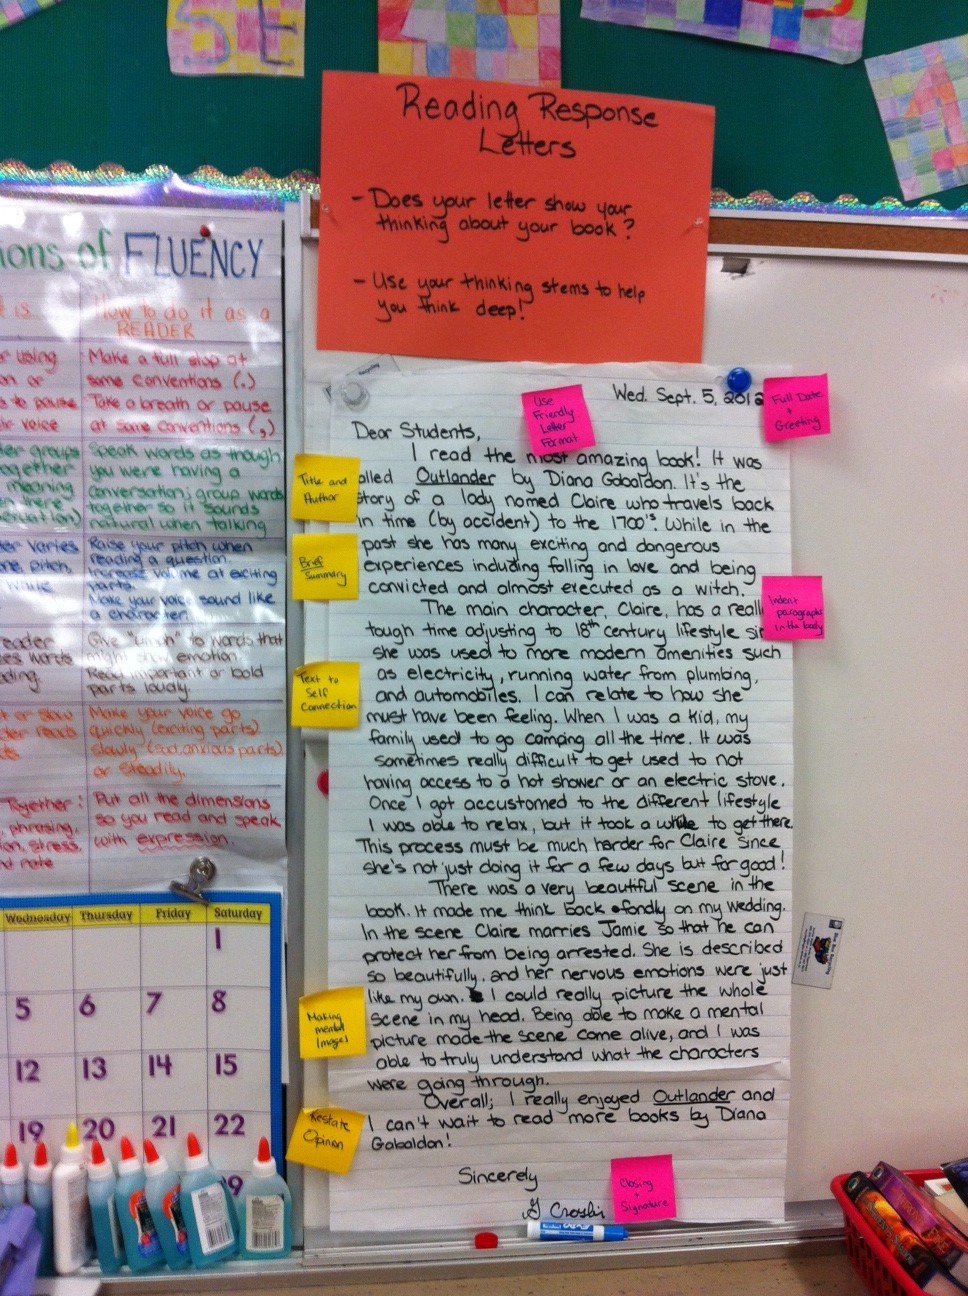 SE
Reading Response
Letters
- Does your letter show your
thinking about your book?
- Use your thinking stems to help
you think deep!
ions of FLUENCY
t is
How to do it as a
READER
er using
on or
s to pause
eir voice
Make a full stop at
some conventions (.)
Take a breath or pause
at some conventions (,)
der groups
together
meaning
Speak words as though
you were having a
conversation; group words
together so it sounds
natural when talking
der varies
one, pitch,
Raise your pitch when
reading a question.
Increase volume at exciting
parts.
Make your voice sound like
a character!
reader
es words
ding.
Give "umph" to words that
might show emotion.
Read important or bold
parts loudly.
st or slow
der reads
Make your voice go
quickly (exciting parts)
slowly (sad, anxious parts)
or steadily.
Together:
phrasing,
on, stress,
nd rate
Put all the dimensions
so you read and speak
with expression.
Wed. Sept. 5, 2012
Full Date
+
Greeting
Use
Friendly
Letter
Format
Dear Students,
I read the most amazing book! It was
alled Outlander by Diana Gabaldon. It's the
story of a lady named Claire who travels back
in time (by accident) to the 1700's. While in the
past she has many exciting and dangerous
experiences including falling in love and being
convicted and almost executed as a witch.
The main character, Claire, has a reall
tough time adjusting to 18th century lifestyle sin
she was used to more modern amenities such
as electricity, running water from plumbing,
and automobiles. I can relate to how she
must have been feeling. When I was a kid, my
family used to go camping all the time. It was
sometimes really difficult to get used to not
having access to a hot shower or an electric stove.
Once I got accustomed to the different lifestyle
I was able to relax, but it took a while to get there.
This process must be much harder for Claire since
she's not just doing it for a few days but for good!
There was a very beautiful scene in the
book. It made me think back fondly on my wedding.
In the scene Claire marries Jamie so that he can
protect her from being arrested. She is described
so beautifully, and her nervous emotions were just
like my own. I could really picture the whole
scene in my head. Being able to make a mental
picture made the scene come alive, and I was
able to truly understand what the characters
were going through.
Overall, I really enjoyed Outlander and
I can't wait to read more books by Diana
Gabaldon!
Sincerely
G Crosbie
Title and
Author
Brief
Summary
Text to
Self
Connection
Making
mental
Images
Restate
Opinion
Indent
paragraphs
in the body
Closing
+
Signature
Wednesday Thursday Friday Saturday
1
5 6 7 8
12 13 14 15
19 20 21 22
29
EXPO